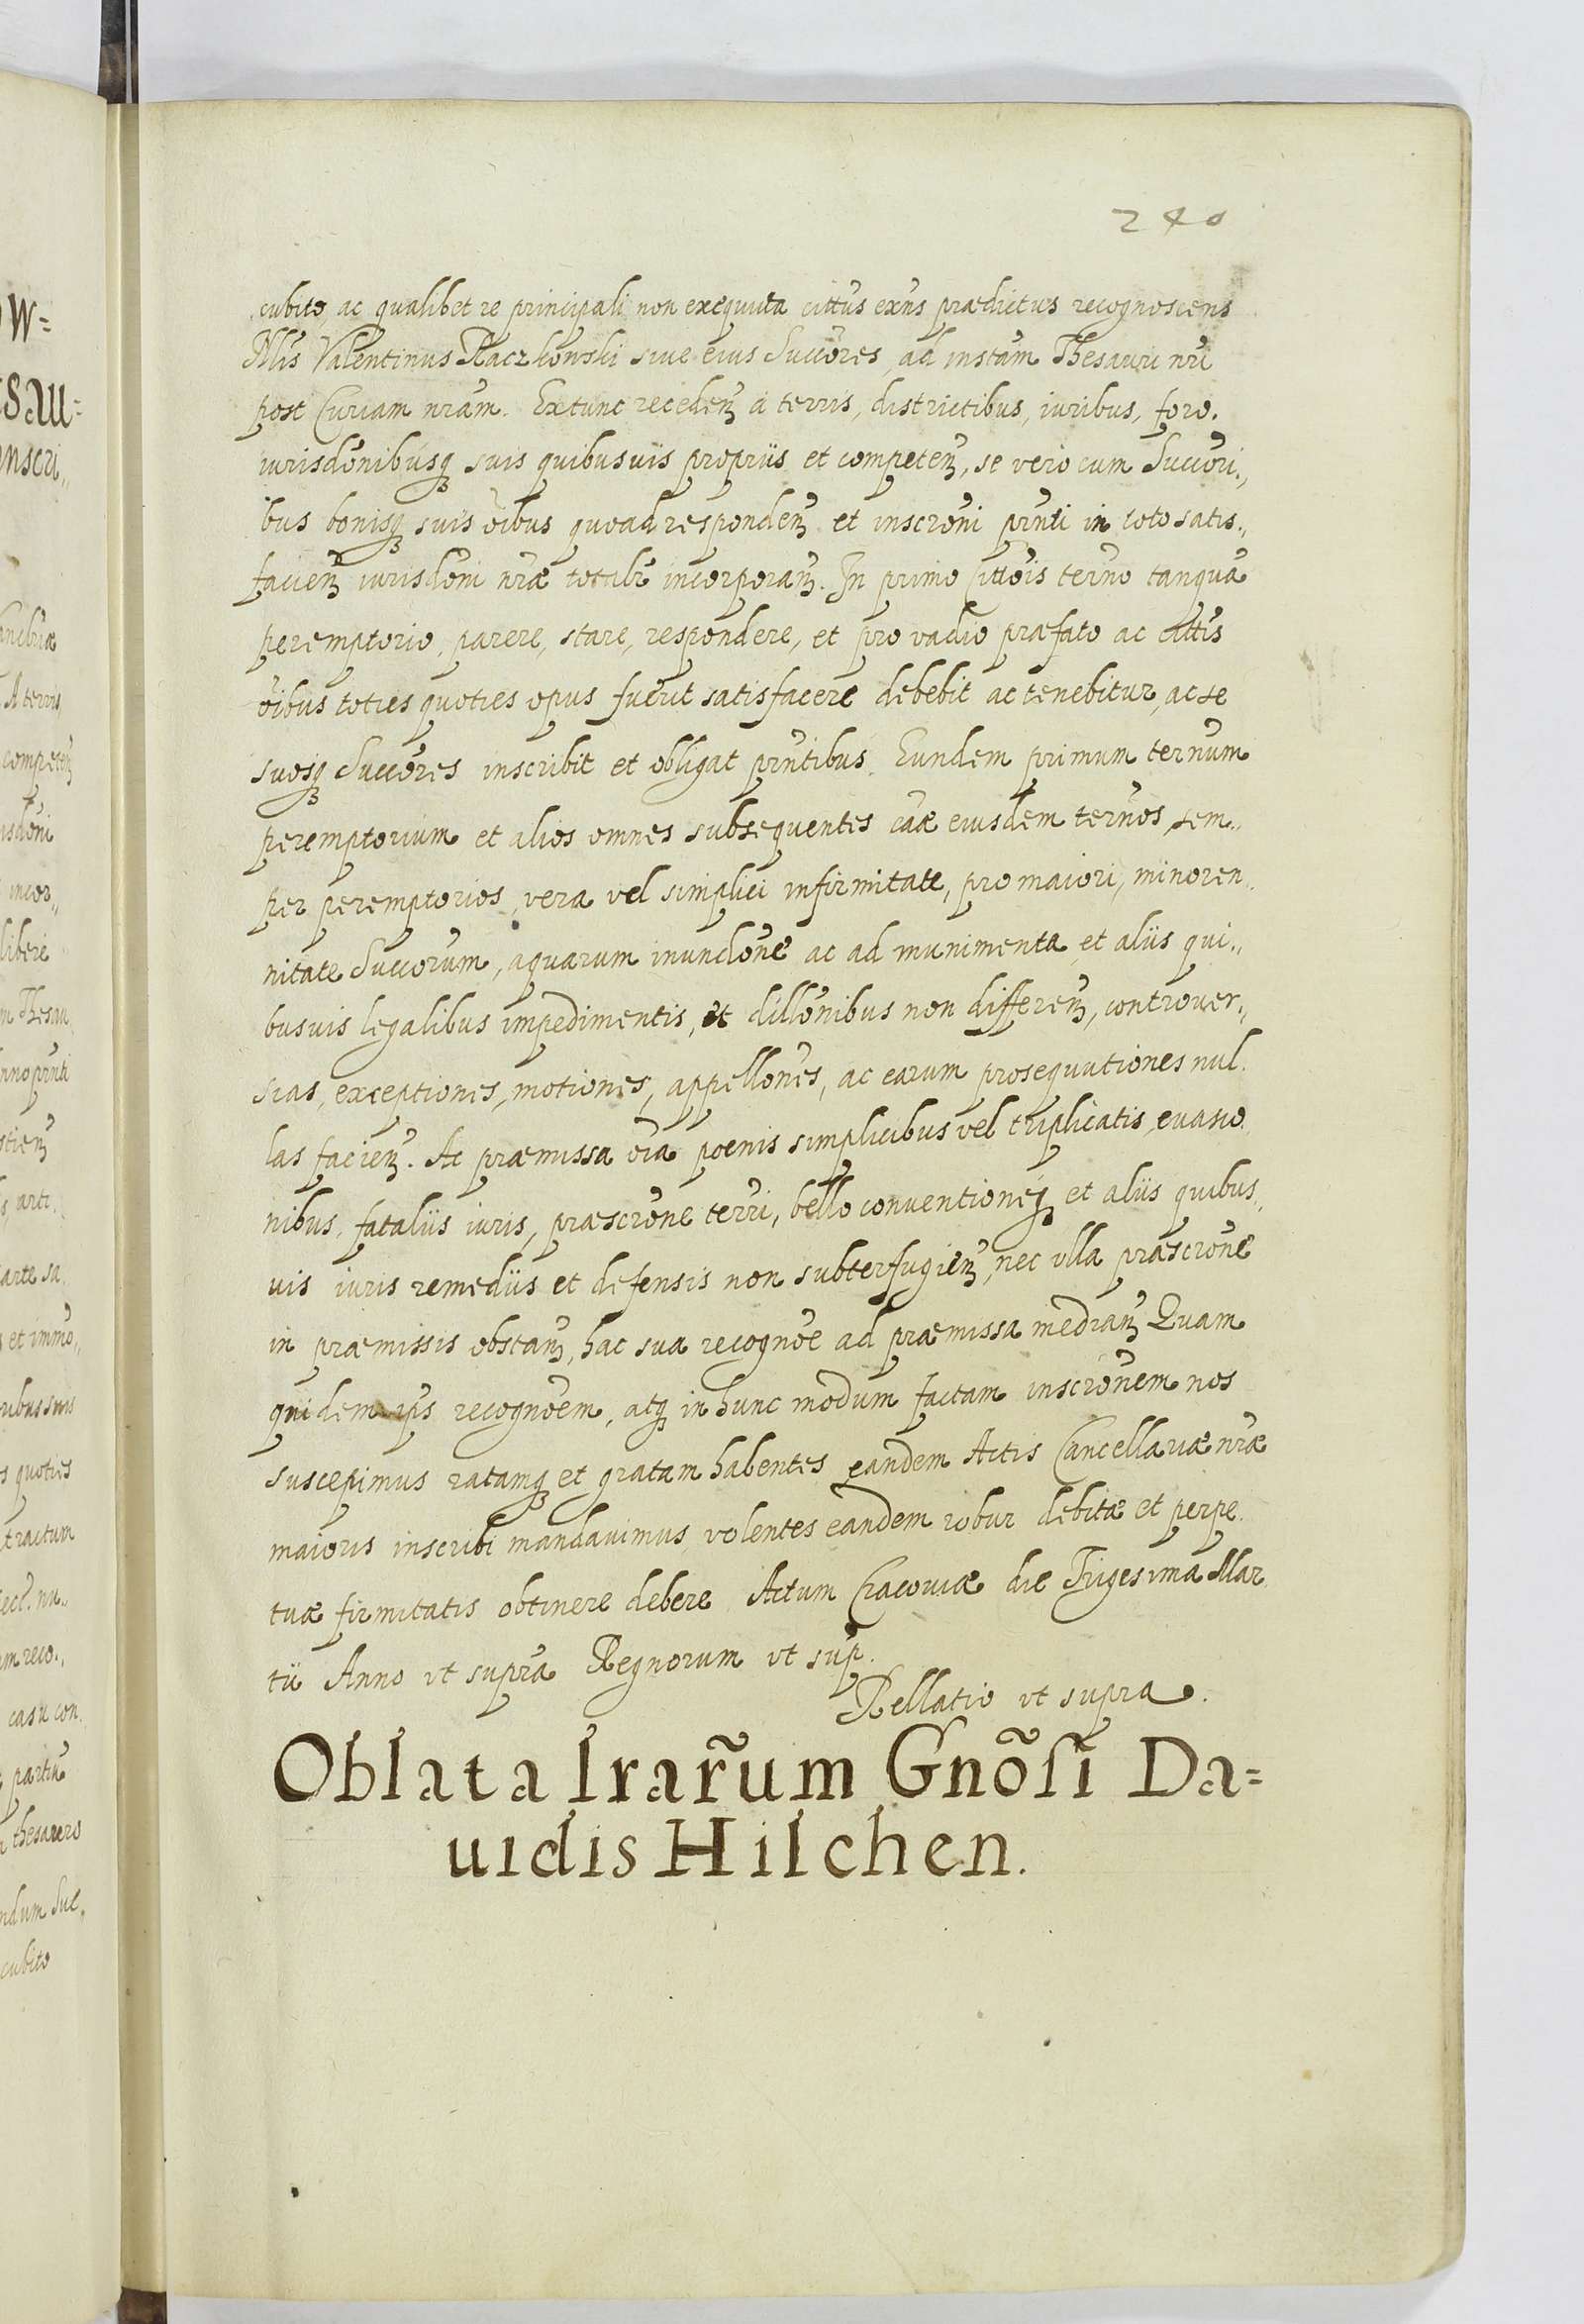 240
cubito, ac qualibet re principali non exequuta cittũs exñs prædictus recognoscens
Nblis Valentinus Raczkowski siue eius Succõres, ad instãm Thesauri nrĩ
post Curiam nrãm. Extunc receden̄ a terris, districtibus, iuribus, foro.
iurisdõnibusq̃ suis quibusuis propriis et competen̄, se vero cum Succõri„
bus bonisq̃ suis oĩbus quoad responden̄ et inscrõni prñti in toto satis„
facien̄ iurisdõni nrã̃e totalr̃ incorporan̄. In primo Cittõis terño tanquã
peremptorio, parere, stare, respondere, et pro vadio præfato ac cittis
oĩbus toties quoties opus fuerit satisfacere debebit ac tenebitur, ac se
suosq̃ Succõres inscribit et obligat prñtibus. Eundem primum terñum
peremptorium et alios omnes subsequentes cãæ eiusdem terños, sem„
per peremptorios, vera vel simplici infirmitate, pro maiori, minoren„
nitate Succõrum, aquarum inundõne ac ad munimenta et aliis qui„
busuis legalibus impedimentis, et dillõnibus non differen̄, controuer„
sias, exceptiones, motiones, appellõnes, ac earum prosequutiones nul„
las facien̄. Ac præmissa oĩa poenis simplicibus vel triplicatis, euasio„
nibus, fataliis iuris, præscrõne terri, bello conuentioneq̃ et aliis quibus„
vis iuris remediis et defensis non subterfugien̄, nec vlla præscrõne
in præmissis obstan̄, hac sua recognõe ad præmissa median̄ Quam
quidem ips̃ recognõem, atq̃ in hunc modum factam inscrõnem nos
suscepimus ratamq̃ et gratam habentes eandem Actis Cancellariæ nrã̃e
maioris inscribi mandauimus, volentes eandem robur debitæ et perpe„
tuæ firmitatis obtinere debere Actum Cracouiæ die Trigesima Mar„
tii Anno vt supra Regnorum vt sup̃.
Rellatio vt supra.
Oblata lrar̃um Gnõsi Da=
uidis Hilchen.